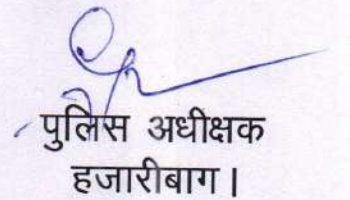 पुलिस अधीक्षक
हजारीबाग।